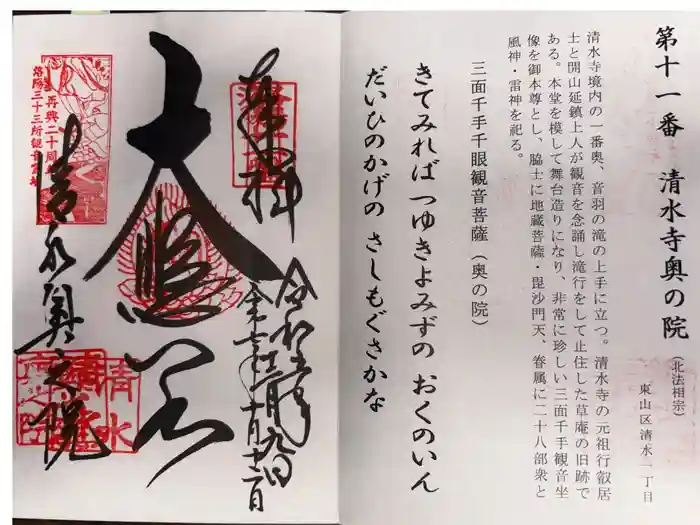 第十一番　清水寺奥の院（北法相宗）
東山区清水一丁目
清水寺境内の一番奥、音羽の滝の上手に立つ。清水寺の元祖行叡居
士と開山延鎮上人が観音を念誦し滝行をして止住した草庵の旧跡で
ある。本堂を模して舞台造りになり、非常に珍しい三面千手観音坐
像を御本尊とし、脇士に地蔵菩薩・毘沙門天、眷属に二十八部衆と
風神・雷神を祀る。
三面千手千眼観音菩薩（奥の院）
きてみればつゆきよみずの おくのいん
だいひのかげの さしもぐさかな
奉拝
大悲閣
清水奥之院
再興二十周年
洛陽三十三所観音霊場
清水